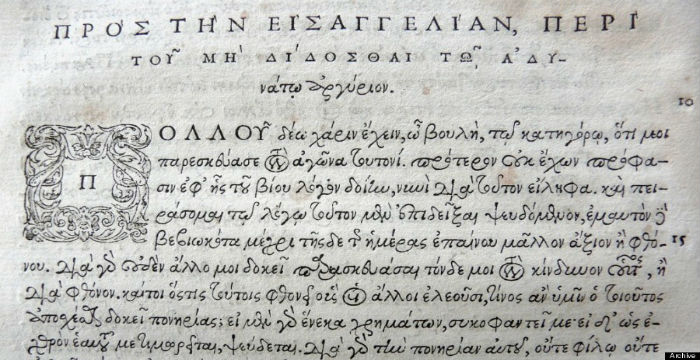 ΠΡΟΣ ΤΗΝ ΕΙΣΑΓΓΕΛΙΑΝ, ΠΕΡΙ
ΤΟΥ͂ ΜῊ ΔΙΔΟΣΘΑΙ ΤΩ͂ ἈΔΥ-
νάτῳ ἀργύριον.
10
ΠΟΛΛΟΥ͂ δέω χάριν ἔχειν, ὦ βουλὴ, τῷ κατηγόρῳ, ὅτι μοι
παρεσκεύασε τὸν ἀγῶνα τουτονί. πρότερον οὐκ ἔχων πρόφα-
σιν ἐφ' ἧς τοῦ βίου λόγον δοίην, νυνὶ διὰ τοῦτον εἴληφα. καὶ πει-
ράσομαι τῷ λόγῳ τοῦτον μὲν ἐπιδεῖξαι ψευδόμενον, ἐμαυτὸν δὲ
βεβιωκότα μέχρι τῆσδε τῆς ἡμέρας ἐπαίνου μᾶλλον ἄξιον ἢ φθό- 15
νου. διὰ γὰρ οὐδὲν ἄλλο μοι δοκεῖ παρασκευάσαι τόνδε μοι τὸν κίνδυνον οὗτος, ἢ
διὰ φθόνον. καίτοι ὅστις τούτοις φθονεῖ οὓς οἱ ἄλλοι ἐλεοῦσι, τίνος ἂν ὑμῖν ὁ τοιοῦτος
ἀποχέσθαι δοκεῖ πονηρίας; εἰ μὲν γὰρ ἕνεκα χρημάτων, συκοφαντεῖ με· εἰ δ' ὡς ἐ-
χθρὸν ἑαυτοῦ με τιμωρεῖται, ψεύδεται. διὰ γὰρ τὴν πονηρίαν αὐτοῦ, οὔτε φίλῳ οὔτε
Archivo